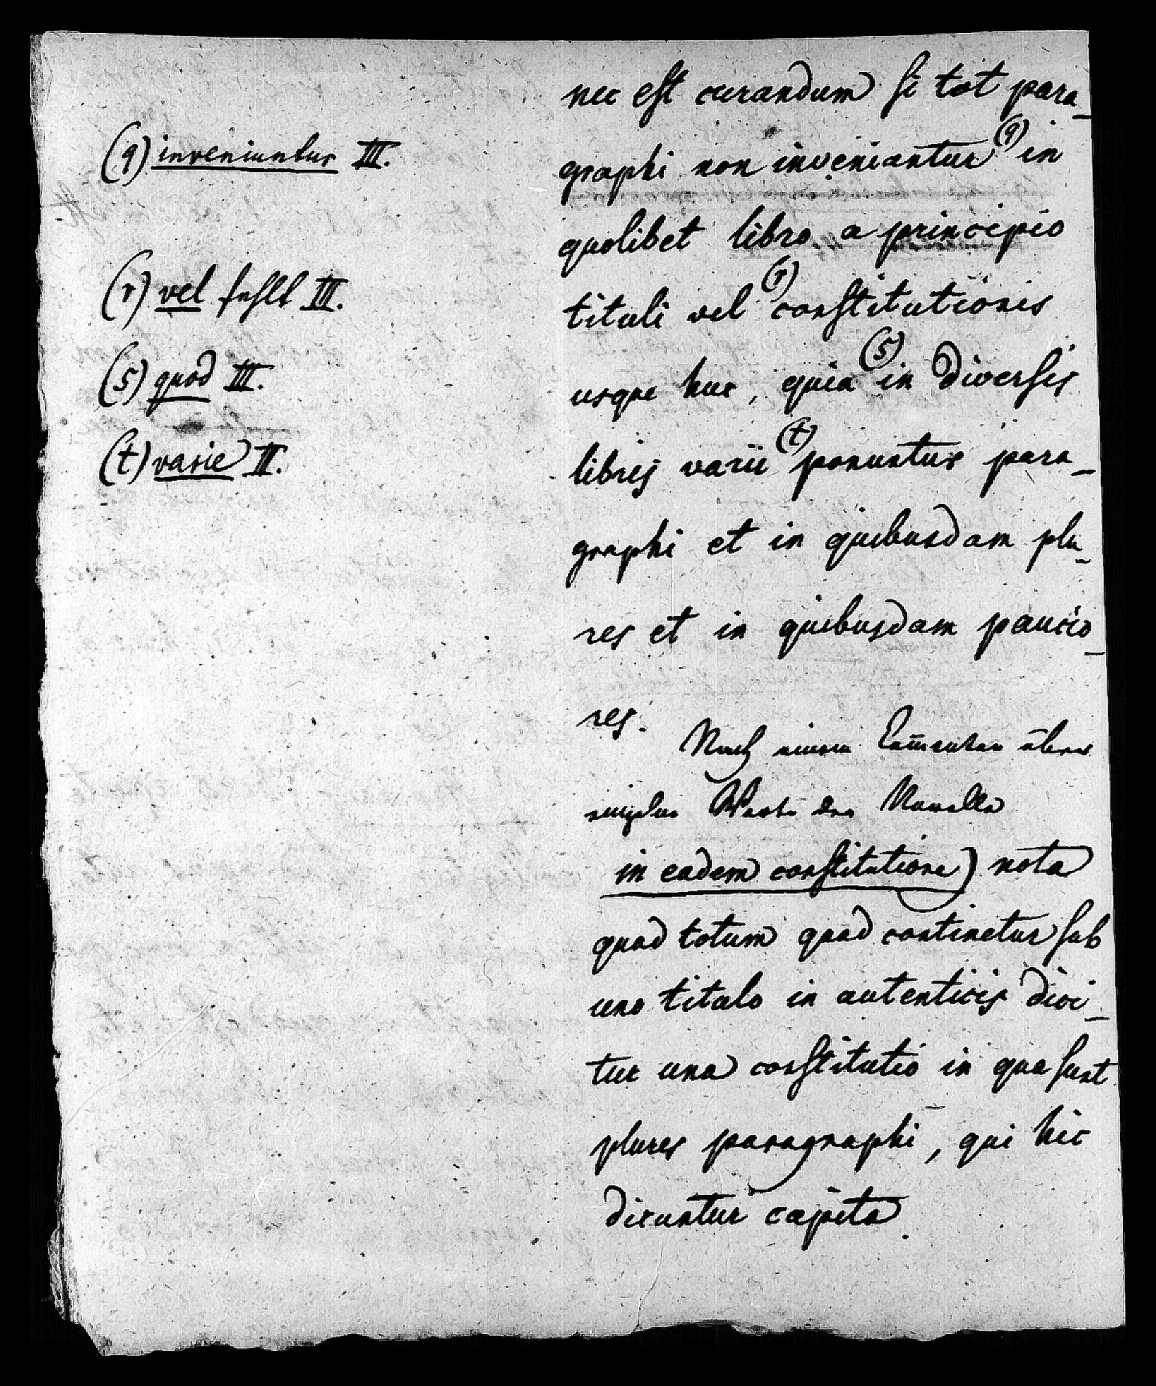 (q) inveniuntur III.
(r) vel fehlt III.
(s) quod III.
(t) varie II.
nec est curandum si tot para_
graphi non inveniantur (q) in
quolibet libro a principio
tituli vel (r) constitutionis
usque huc, quia (s) in diversis
libris varii (t) ponuntur para_
graphi et in quibusdam plu_
res et in quibusdam paucio_
res.
Nach einem Commentar über
einzelne Worte der Novelle
in eadem constitutione) nota
quod totum quod continetur sub
uno titulo in autenticis dici_
tur una constitutio in qua sunt
plures paragraphi, qui hic
dicuntur capita.